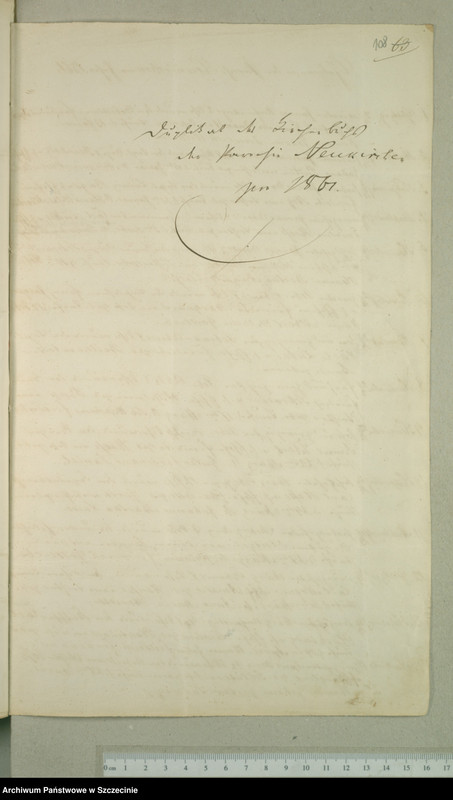 108 63
Duplikat des Kirchenbuchs
der Parochie Neukirchen
pro 1861.
0 cm 1 2 3 4 5 6 7 8 9 10 11 12 13 14 15 16 17
Archiwum Państwowe w Szczecinie